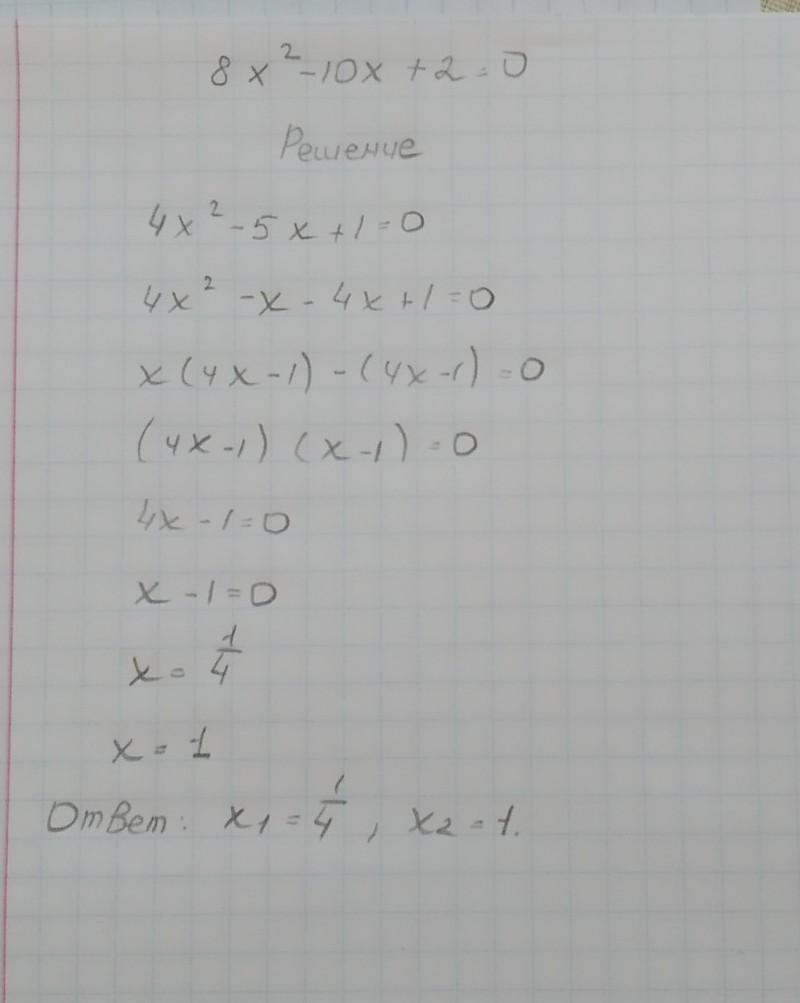 8x²-10x+2=0
Решение
4x²-5x+1=0
4x²-x-4x+1=0
x(4x-1)-(4x-1)=0
(4x-1)(x-1)=0
4x-1=0
x-1=0
x=1/4
x=1
Ответ: x₁=1/4, x₂=1.